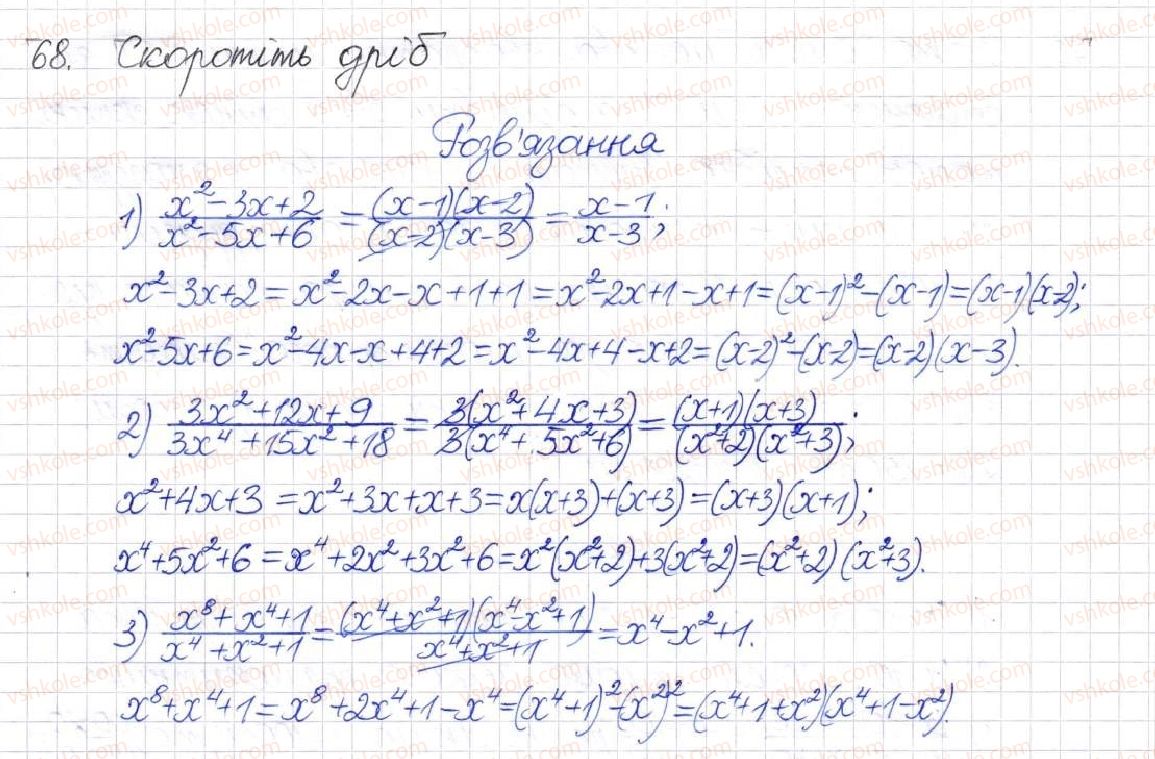 68. Скоротіть дріб
Розв'язання
1) (x²-3x+2)/(x²-5x+6) = ((x-1)(x-2))/((x-2)(x-3)) = (x-1)/(x-3);
x²-3x+2 = x²-2x-x+1+1 = x²-2x+1-x+1 = (x-1)²-(x-1) = (x-1)(x-2);
x²-5x+6 = x²-4x-x+4+2 = x²-4x+4-x+2 = (x-2)²-(x-2) = (x-2)(x-3).
2) (3x²+12x+9)/(3x⁴+15x²+18) = (3(x²+4x+3))/(3(x⁴+5x²+6)) = ((x+1)(x+3))/((x²+2)(x²+3));
x²+4x+3 = x²+3x+x+3 = x(x+3)+(x+3) = (x+3)(x+1);
x⁴+5x²+6 = x⁴+2x²+3x²+6 = x²(x²+2)+3(x²+2) = (x²+2)(x²+3).
3) (x⁸+x⁴+1)/(x⁴+x²+1) = ((x⁴+x²+1)(x⁴-x²+1))/(x⁴+x²+1) = x⁴-x²+1.
x⁸+x⁴+1 = x⁸+2x⁴+1-x⁴ = (x⁴+1)²-(x²)² = (x⁴+1+x²)(x⁴+1-x²).
vshkole.com